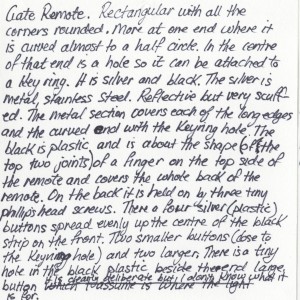 Gate Remote. Rectangular with all the
corners rounded. More at one end where it
is curved almost to a half circle. In the centre
of that end is a hole so it can be attached to
a key ring. It is silver and black. The silver is
metal, stainless steel. Reflective but very scuff-
ed. The metal section covers each of the long edges
and the curved end with the keyring hole. The
black is plastic and is about the shape (of the
top two joints) of a finger on the top side of
the remote and covers the whole back of the
remote. On the back it is held on by three tiny
philips head screws. There a four silver (plastic)
buttons spread evenly up the centre of the black
strip on the front. Two smaller buttons (close to
the keyring hole) and two larger. There is a tiny
hole in the black plastic beside the end large
button which I assume is where the light
is clearly deliberate but I don't know what it
is for.